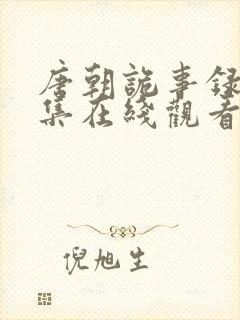 唐朝詭事錄
集在綫觀看
倪旭生